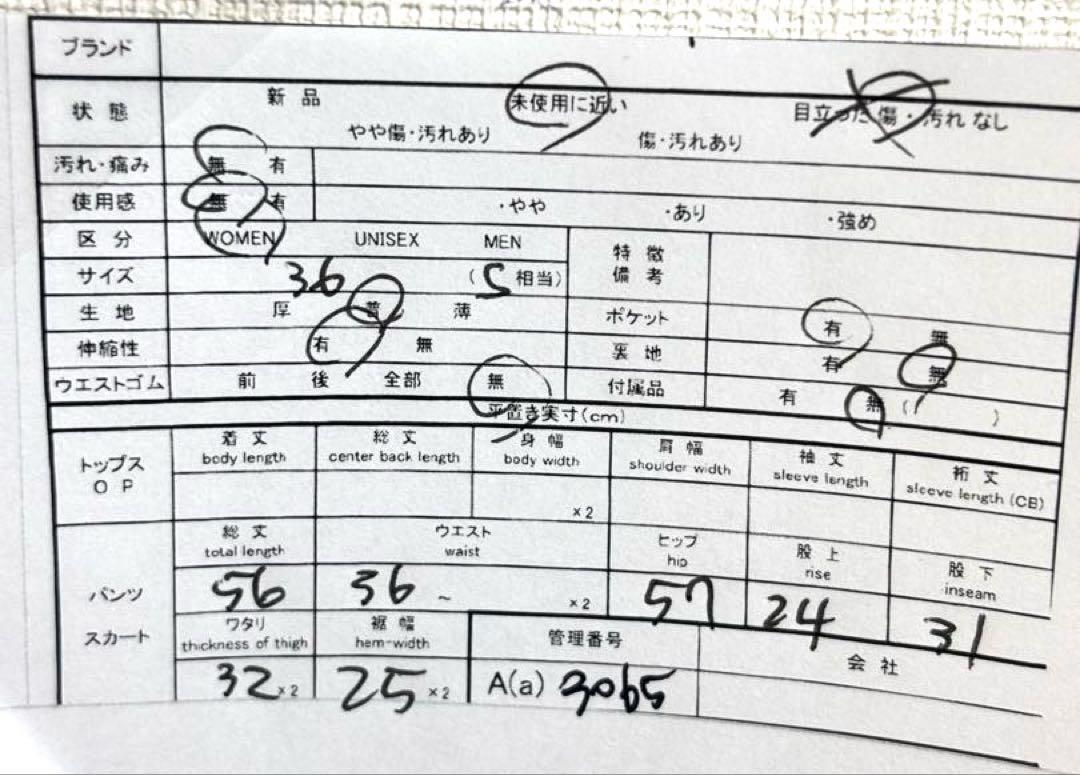 ブランド
状態 新品 未使用に近い 目立った傷・汚れなし
やや傷・汚れあり 傷・汚れあり
汚れ・痛み 無 有
使用感 無 有 ・やや ・あり ・強め
区分 WOMEN UNISEX MEN 特徴
備考
サイズ 36 (S相当)
生地 厚 普 薄 ポケット 有 無
伸縮性 有 無 裏地 有 無
ウエストゴム 前 後 全部 無 付属品 有 無 ( )
平置き実寸(cm)
トップス
OP
着丈 総丈 身幅 肩幅 袖丈 裄丈
body length center back length body width shoulder width sleeve length sleeve length (CB)
×2
パンツ
スカート
総丈 ウエスト ヒップ 股上 股下
total length waist hip rise inseam
56 36 ~ ×2 57 24 31
ワタリ 裾幅 管理番号 会社
thickness of thigh hem-width
32×2 25×2 A(a) 3065